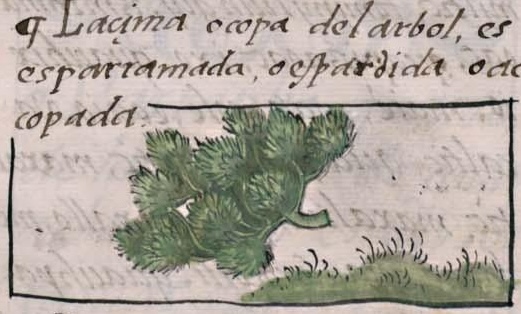 ¶ Laçima ocopa del arbol, es
esparramada, oespardida oac
copada.